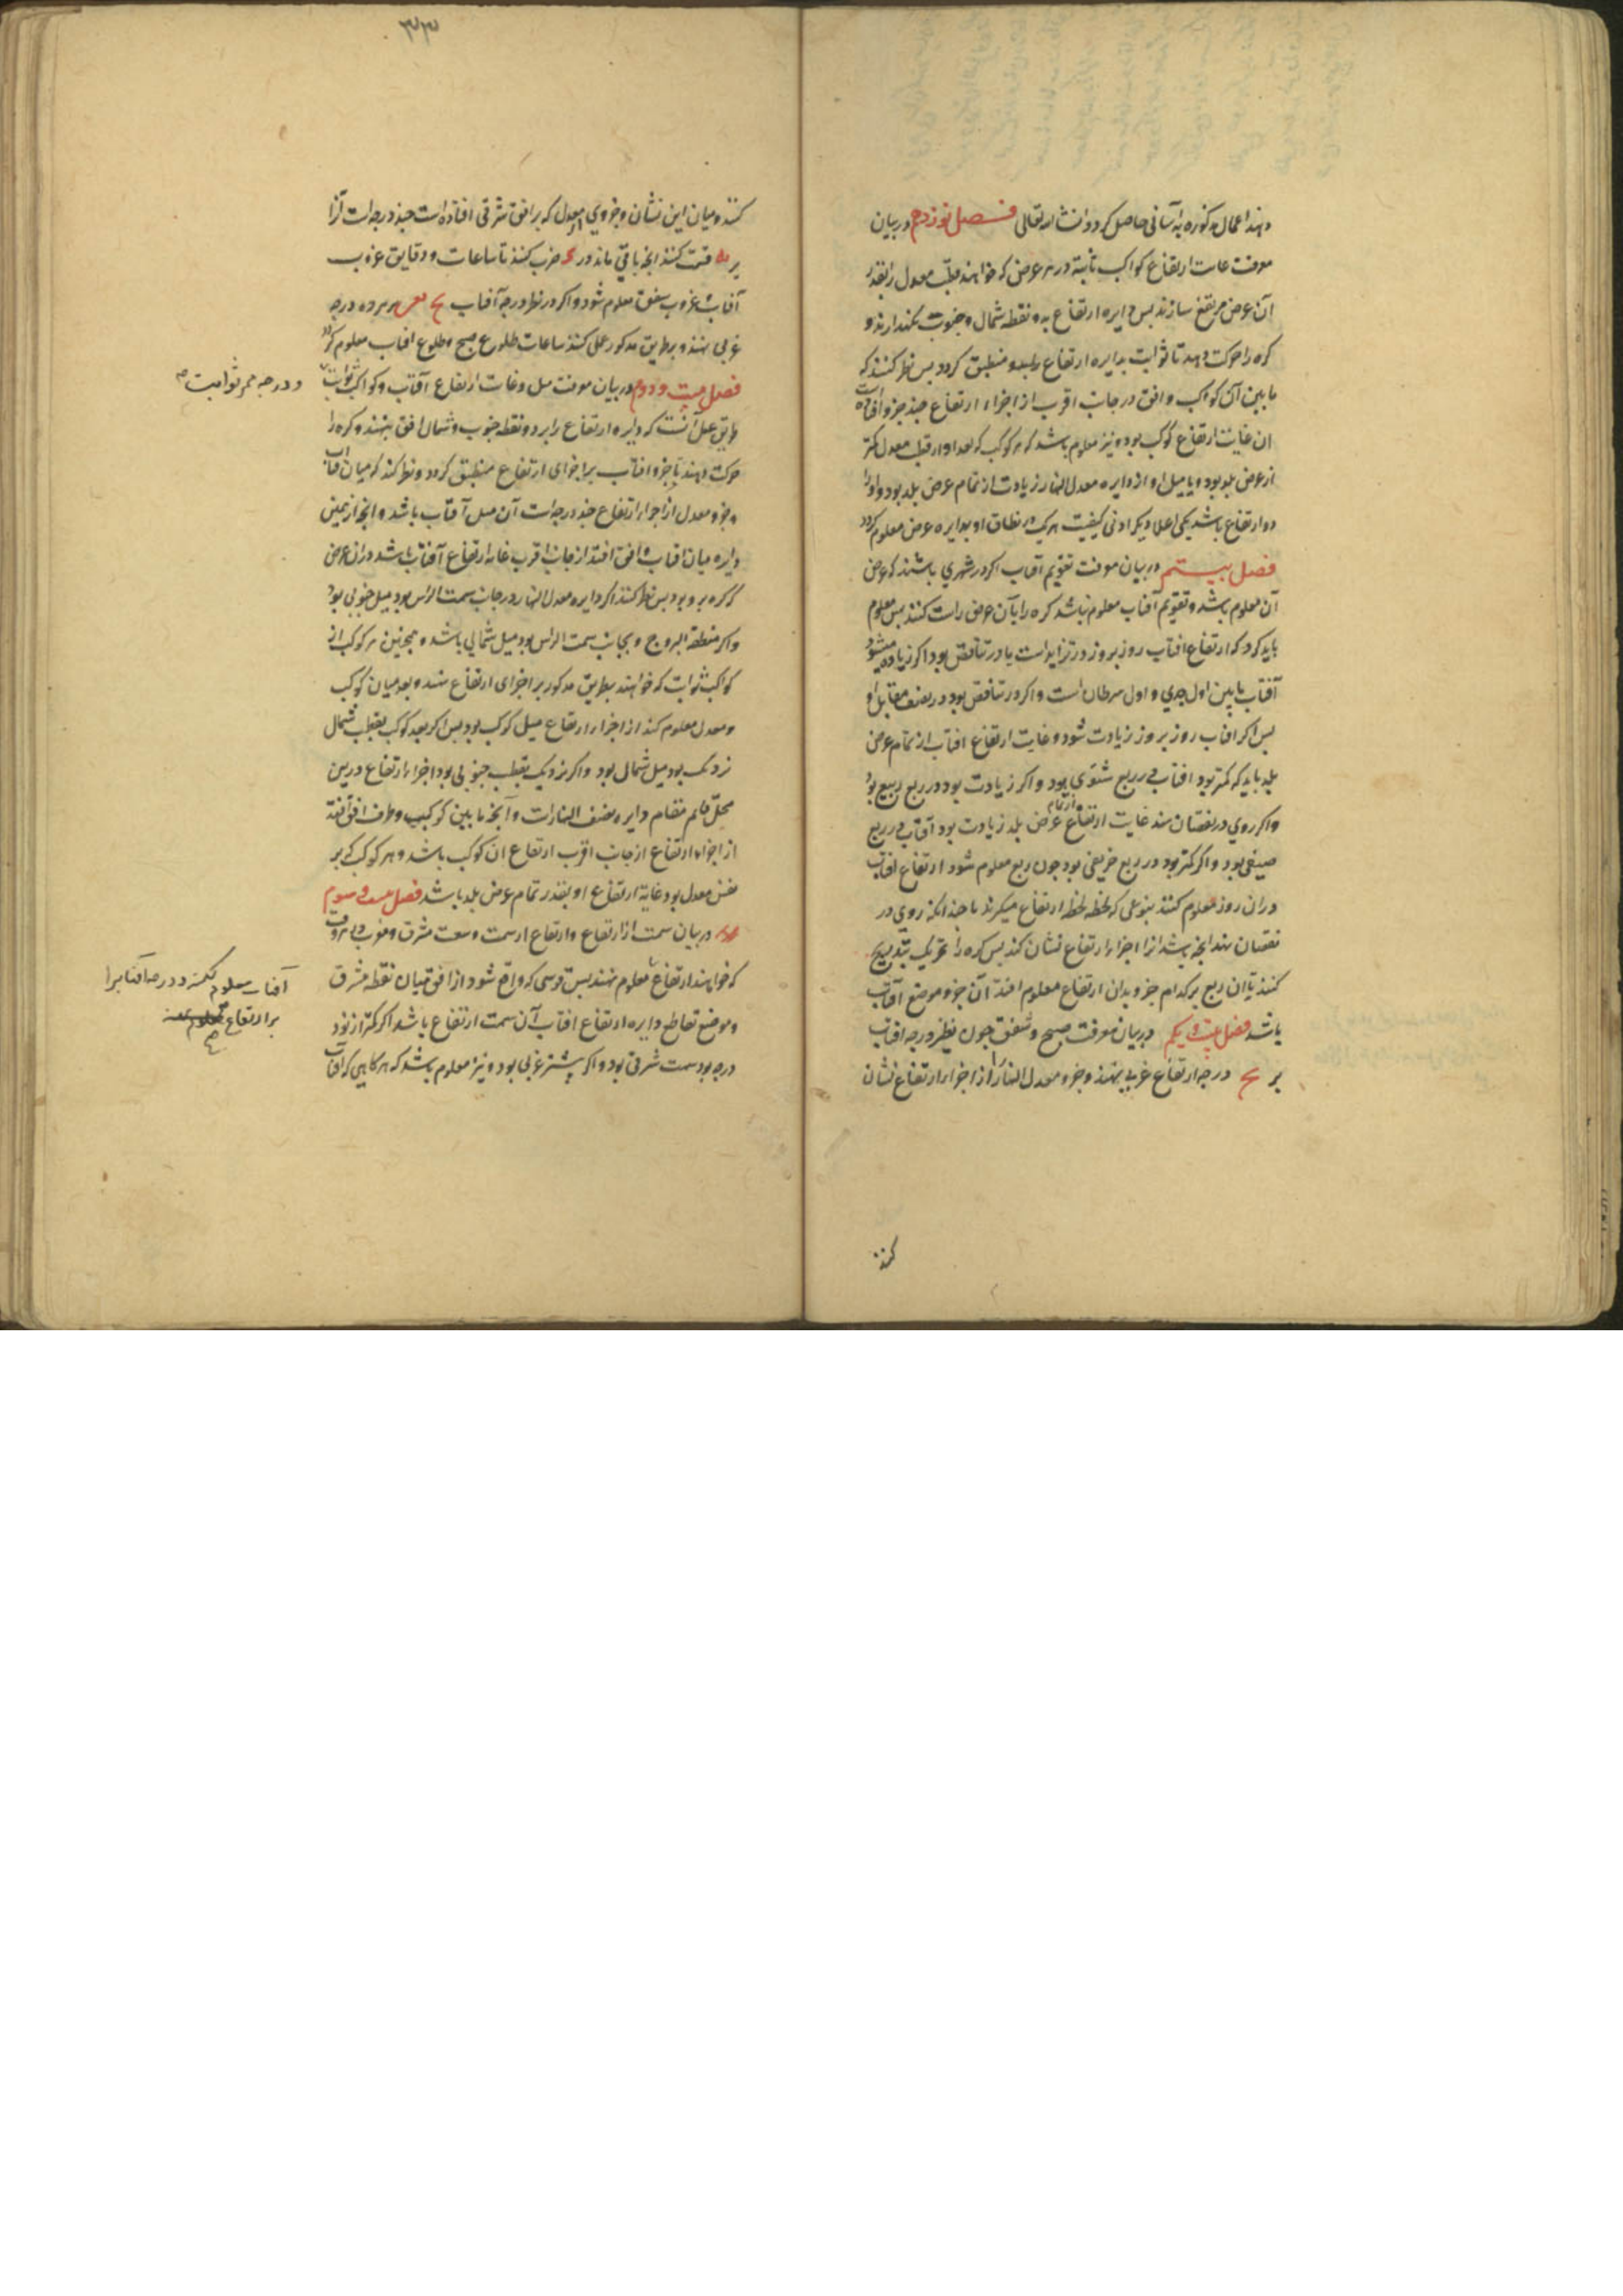 دهند اعمال مذکوره به آسانی حاصل کردد انشا الله تعالی فصل نوزدهم در بیان
معرفت غایت ارتفاع کواکب ثابتة در هر عرض که خواهند قطب معدل را بقدر
آن عرض مرتفع سازند بس دایره ارتفاع به دو نقطه شمال و جنوب بگذارند و
کره را حرکت دهند تا ثوابت بدایره ارتفاع رسد و منطبق کردد بس نظر کنند که
ما بین آن کوکب و افق در جانب اقرب از اجزاء ارتفاع جند جزو افتاده است
ان غایت ارتفاع کوکب بود و نیز معلوم باشد که هر کوکب که بعد او از قطب معدل کمتر
از عرض بلد بود و یا میل او از دایره معدل النهار زیادت از تمام عرض بلد بود و او را
دو ارتفاع باشد یکی اعلا و دیکر ادنی کیفیت هر یک از نطاق او بدایره عرض معلوم کردد
فصل بیستم در بیان معرفت تقویم آفتاب اکر در شهری باشند که عرض
آن معلوم باشد و تقویم آفتاب معلوم نباشد کره را بآن عرض راست کنند بس معلوم
باید کرد که ارتفاع افتاب روز بروز در تزاید است یا در تناقص بود اکر زیاده میشود
آفتاب ما بین اول جدی و اول سرطان است و اکر در تناقص بود در نصف مقابل او
بس اکر افتاب روز بروز زیادت شود و غایت ارتفاع افتاب از تمام عرض
بلد باید که کمتر بود افتاب در ربع شتوی بود و اکر زیادت بود در ربع ربیع بود
واکر روی در نقصان نهد غایت ارتفاع از تمام عرض بلد زیادت بود آفتاب در ربع
صیفی بود و اکر کمتر بود در ربع خریفی بود جون ربع معلوم شود ارتفاع افتاب
در ان روز معلوم کنند بنوعی که لحظه لحظه ارتفاع میکرند تا جندانکه روی در
نقصان نهد انجه باشد از اجزاء ارتفاع نشان کند بس کره را تحریک بتدریج
کنند تا ان ربع بر کدام جزو بدان ارتفاع معلوم افتد آن جزو موضع آفتاب
باشد فصل بیست و یکم در بیان معرفت صبح و شفق جون نظیر درجه افتاب
بر یح درجه ارتفاع غربی نهند و جزو معدل النهار را از اجزاء ارتفاع نشان
کنند
۳۳۳
کنند و میان این نشان و جزوی از معدل که بر افق شرقی افتاده است جند درجه است آنرا
بر یه قسمت کنند انجه باقی ماند در د ضرب کنند تا ساعات و دقایق غروب
آفتاب تا غروب شفق معلوم شود و اکر در نظر درجه آفتاب یح درجه
غربی نهند و بر طریق مذکور عمل کنند ساعات طلوع صبح و طلوع افتاب معلوم کردد
فصل بیست و دوم در بیان معرفت میل و غایت ارتفاع آفتاب و کواکب ثوابت
و درجه ممر ثوابت صح
طریق عمل آنست که دایره ارتفاع را بر دو نقطه جنوب و شمال افق بنهند و کره را
حرکت دهند تا جزو افتاب بر اجزای ارتفاع منطبق کردد و نظر کند که میان افتاب
و جزو معدل از اجزاء ارتفاع جند درجه است آن میل آفتاب باشد و انجه از همین
دایره میان افتاب و افق افتد از جانب اقرب غایه ارتفاع آفتاب باشد در ان عرض
که کره برو بود بس نظر کنند اکر دایره معدل النهار در جانب سمت الراس بود میل جنوبی بود
واکر منطقة البروج بجانب سمت الراس بود میل شمالی باشد و همجنین هر کوکب از
کواکب ثوابت که خواهند بطریق مذکور بر اجزای ارتفاع نهند و بعد میان کوکب
ومعدل معلوم کنند از اجزاء ارتفاع میل کوکب بود بس اکر بعد کوکب بقطب شمال
نزدیک بود میل شمالی بود واکر نزدیک بقطب جنوبی بود اجزاء ارتفاع درین
محل قایم مقام دایره نصف النهار است و آنجه ما بین کوکب و طرف افق افتد
از اجزاء ارتفاع از جانب اقرب ارتفاع ان کوکب باشد و هر کوکب که بر
نفس معدل بود غایة ارتفاع او بقدر تمام عرض بلد باشد فصل بیست و سوم
در بیان سمت از ارتفاع وارتفاع از سمت وسعت مشرق و مغرب در هر وقت
که خواهند ارتفاع معلوم نهند بس قوسی که واقع شود از افق میان نقطه مشرق
آفتاب معلوم کنند و درجه آفتابرا
بر ارتفاع معلوم نهند صح
وموضع تقاطع دایره ارتفاع افتاب آن سمت ارتفاع باشد اکر کمتر از نود
درجه بود سمت شرقی بود واکر بیشتر غربی بود و نیز معلوم باشد که هر کاهی که آفتاب